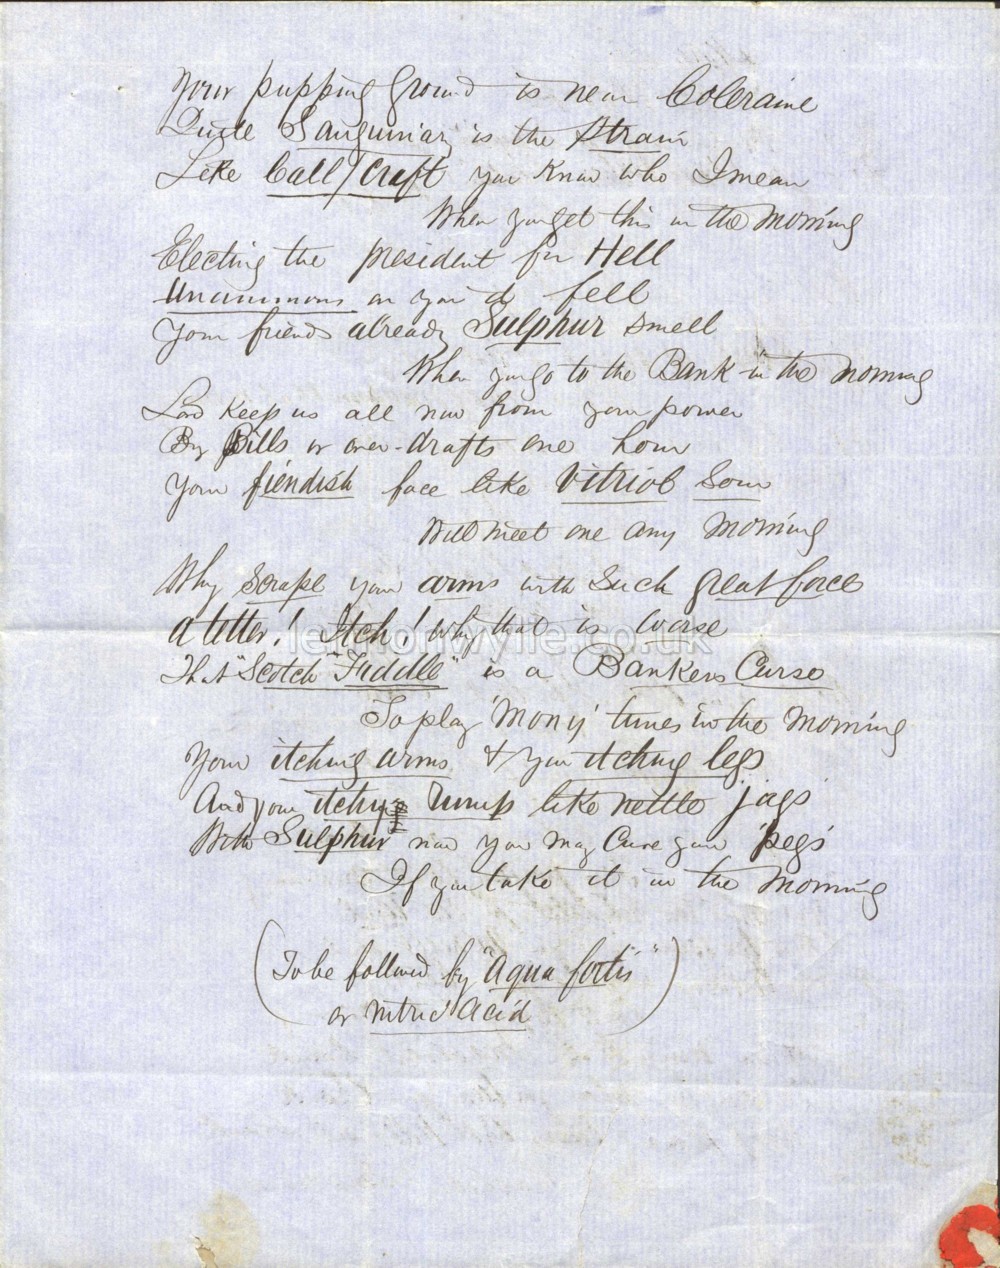 Your pupping ground is near Coleraine
Quite Sanguinary is the Strain
Like Call/Craft you Know who I mean
When you get this in the Morning
Electing the president for Hell
Unanimous on you it fell
Your friends already Sulphur smell
When you go to the Bank in the Morning
Lord Keep us all now from your power
By Bills or over-drafts one hour
Your fiendish face like Vitriol Sour
Will meet one any Morning
Why Scrape your arms with Such great force
A tetter! Itch! Why that is worse
That "Scotch Fiddle" is a Bankers Curse
To play 'Mony' tunes in the Morning
Your itching arms & your itching legs
And your itchy rump like nettle jags
With Sulphur now you may Cure your 'pegs'
If you take it in the Morning
(To be followed by "Aqua fortis"
or Nitric Acid)
lennonwylie.co.uk